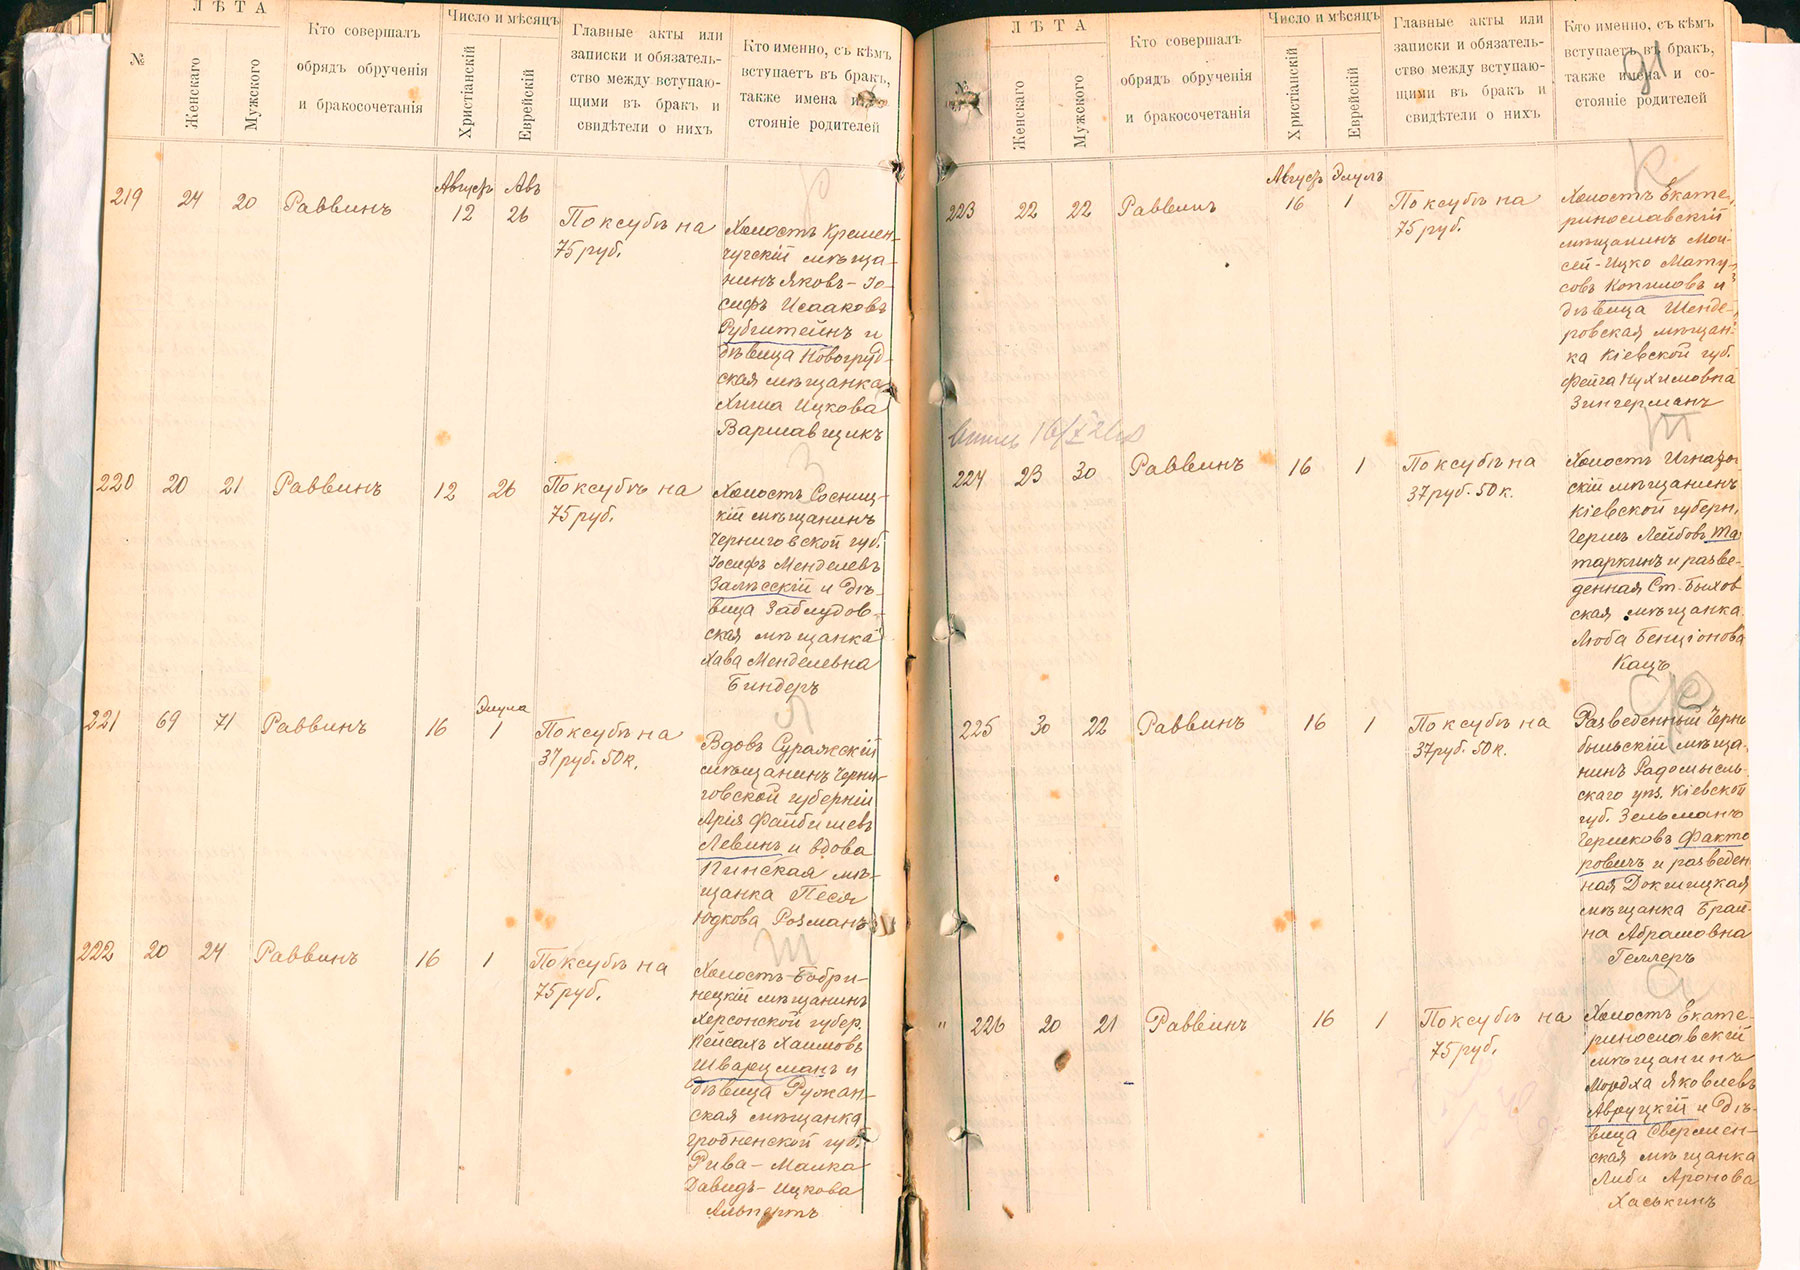 №
ЛѢТА
Женскаго
Мужского
Кто совершалъ
обрядъ обрученія
и бракосочетанія
Число и мѣсяцъ
Христіанскій
Еврейскій
Главные акты или
записки и обязатель-
ство между вступаю-
щими въ бракъ и
свидѣтели о нихъ
Кто именно, съ кѣмъ
вступаетъ въ бракъ,
также имена и со-
стояніе родителей
219 24 20 Раввинъ
Августъ Авъ
12 26
По ксубѣ на
75 руб.
Холостъ Кремен-
чугскій мѣща-
нинъ Яковъ-Іо-
сифъ Исааковъ
Рубштейнъ и
дѣвица Новогруд-
ская мѣщанка
Хиша Ицкова
Варшавщикъ
220 20 21 Раввинъ 12 26
По ксубѣ на
75 руб.
Холостъ Сосниц-
кій мѣщанинъ
Черниговской губ.
Іосифъ Менделевъ
Залѣсскій и дѣ-
вица Заблудов-
ская мѣщанка
Хава Менделевна
Биндеръ
221 69 71 Раввинъ 16
Элула
1
По ксубѣ на
37 руб. 50 к.
Вдовъ Суражскій
мѣщанинъ Черни-
говской губерніи
Арія Файбишевъ
Левинъ и вдова
Пинская мѣ-
щанка Песя
Юдкова Розманъ
222 20 24 Раввинъ 16 1
По ксубѣ на
75 руб.
Холостъ Бобри-
нецкій мѣщанинъ
Херсонской губер.
Пейсахъ Хаимовъ
Шварцманъ и
дѣвица Ружан-
ская мѣщанка
Гродненской губ.
Рива-Малка
Давидъ-Ицкова
Альпертъ
№
ЛѢТА
Женскаго
Мужского
Кто совершалъ
обрядъ обрученія
и бракосочетанія
Число и мѣсяцъ
Христіанскій
Еврейскій
Главные акты или
записки и обязатель-
ство между вступаю-
щими въ бракъ и
свидѣтели о нихъ
Кто именно, съ кѣмъ
вступаетъ въ бракъ,
также имена и со-
стояніе родителей
91
223 22 22 Раввинъ
Августъ Элулъ
16 1
По ксубѣ на
75 руб.
Холостъ Екате-
ринославскій
мѣщанинъ Мои-
сей-Ицко Мату-
совъ Копиловъ и
дѣвица Шенде-
ровская мѣщан-
ка Кіевской губ.
Фейга Нухимовна
Зингерманъ
224 23 30 Раввинъ 16 1
По ксубѣ на
37 руб. 50 к.
Холостъ Игнатов-
скій мѣщанинъ
Кіевской губерн.
Гершъ Лейбовъ Та-
таркинъ и разве-
денная Ст. Быхов-
ская мѣщанка
Люба Бенціонова
Кацъ
225 30 22 Раввинъ 16 1
По ксубѣ на
37 руб. 50 к.
Разведенный Черно-
быльскій мѣща-
нинъ Радомысль-
скаго уѣз. Кіевской
губ. Зельманъ
Гершковъ Факто-
ровичъ и разведен-
ная Докшицкая
мѣщанка Брай-
на Абрамовна
Геллеръ
" 226 20 21 Раввинъ 16 1
По ксубѣ на
75 руб.
Холостъ Екате-
ринославскій
мѣщанинъ
Мордха Яковлевъ
Авруцкій и дѣ-
вица Свержен-
ская мѣщанка
Либа Аронова
Хаськинъ